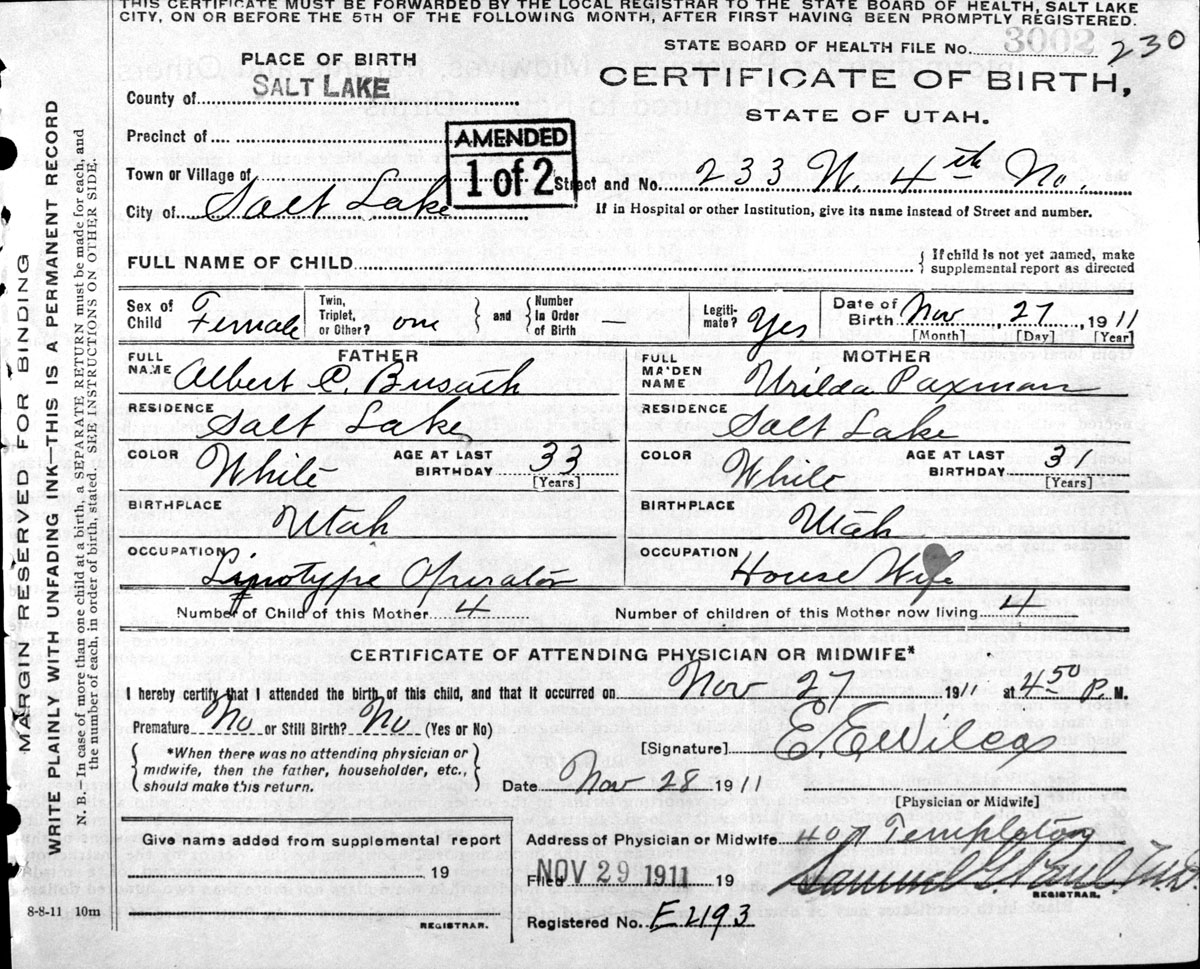 THIS CERTIFICATE MUST BE FORWARDED BY THE LOCAL REGISTRAR TO THE STATE BOARD OF HEALTH, SALT LAKE
CITY, ON OR BEFORE THE 5TH OF THE FOLLOWING MONTH, AFTER FIRST HAVING BEEN PROMPTLY REGISTERED.
STATE BOARD OF HEALTH FILE No. 3002 230
PLACE OF BIRTH
CERTIFICATE OF BIRTH,
STATE OF UTAH.
County of SALT LAKE
Precinct of
AMENDED
1 of 2
Town or Village of
Street and No. 233 W. 4th No.
City of Salt Lake
If in Hospital or other Institution, give its name instead of Street and number.
FULL NAME OF CHILD
{ If child is not yet named, make
supplemental report as directed
Sex of Child Female
Twin, Triplet, or Other? one } and { Number in Order of Birth —
Legiti- mate? Yes
Date of Birth Nov, 27, 1911
[Month] [Day] [Year]
FATHER
FULL NAME Albert C. Busath
RESIDENCE Salt Lake
COLOR White AGE AT LAST BIRTHDAY 33 [Years]
BIRTHPLACE Utah
OCCUPATION Linotype Operator
MOTHER
FULL MAIDEN NAME Urilda Paxman
RESIDENCE Salt Lake
COLOR White AGE AT LAST BIRTHDAY 31 [Years]
BIRTHPLACE Utah
OCCUPATION House Wife
Number of Child of this Mother 4
Number of children of this Mother now living 4
CERTIFICATE OF ATTENDING PHYSICIAN OR MIDWIFE*
I hereby certify that I attended the birth of this child, and that it occurred on Nov 27 1911 at 4 50 P. M.
Premature No or Still Birth? No (Yes or No)
[Signature] E. E Wilcox
{ *When there was no attending physician or
midwife, then the father, householder, etc.,
should make this return. }
Date Nov 28 1911
[Physician or Midwife]
Give name added from supplemental report
19
REGISTRAR.
Address of Physician or Midwife 407 Templeton
Filed NOV 29 1911 19
Samuel G. Paul M.D.
REGISTRAR.
Registered No. E2193
8-8-11 10m
MARGIN RESERVED FOR BINDING
WRITE PLAINLY WITH UNFADING INK—THIS IS A PERMANENT RECORD
N. B.—In case of more than one child at a birth, a SEPARATE RETURN must be made for each, and
the number of each, in order of birth, stated. SEE INSTRUCTIONS ON OTHER SIDE.